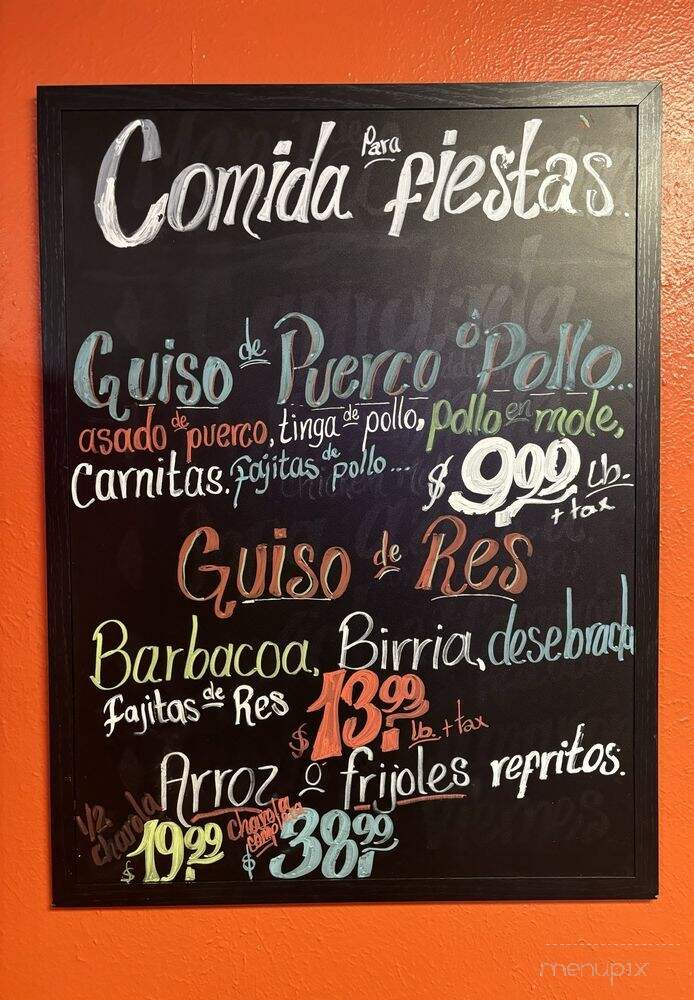 Comida Para fiestas.
Guiso de Puerco ó Pollo...
asado de puerco, tinga de pollo, pollo en mole,
Carnitas. fajitas de pollo... $9.99 Lb.
+ tax
Guiso de Res
Barbacoa, Birria, desebrada
fajitas de Res $13.99 Lb. + tax
Arroz ó frijoles refritos.
1/2 charola $19.99 charola completa $38.99
menupix